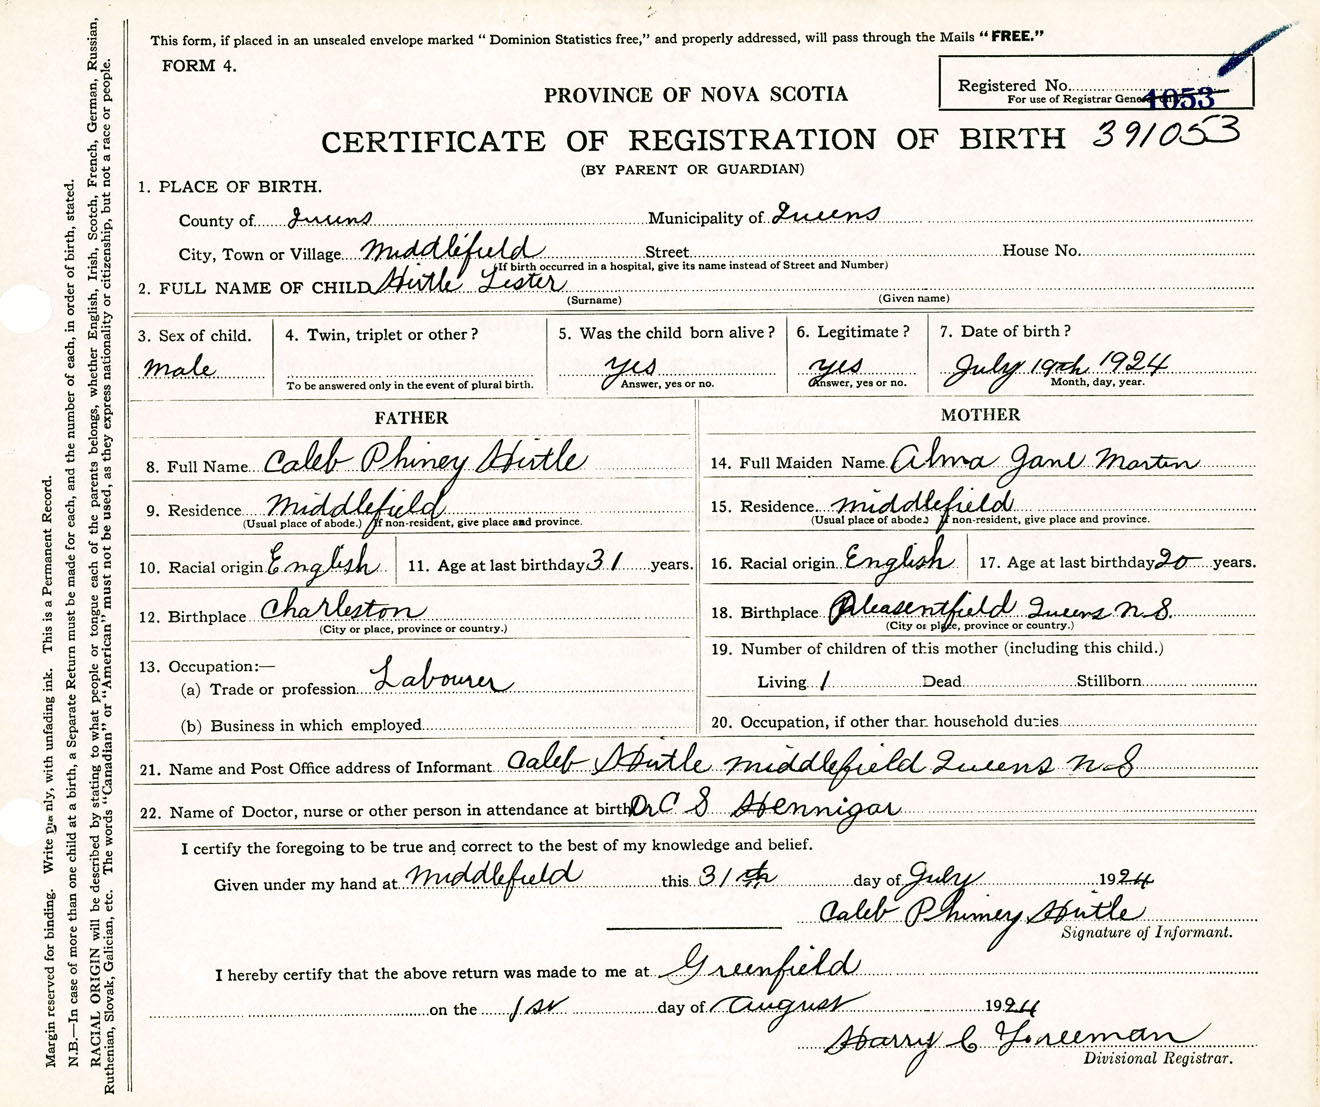 This form, if placed in an unsealed envelope marked " Dominion Statistics free," and properly addressed, will pass through the Mails " FREE."
FORM 4.
Registered No.
For use of Registrar General
1053
PROVINCE OF NOVA SCOTIA
CERTIFICATE OF REGISTRATION OF BIRTH 391053
(BY PARENT OR GUARDIAN)
1. PLACE OF BIRTH.
County of Queens Municipality of Queens
City, Town or Village Middlefield Street House No.
(If birth occurred in a hospital, give its name instead of Street and Number)
2. FULL NAME OF CHILD Hirtle Lester
(Surname) (Given name)
3. Sex of child. 4. Twin, triplet or other ? 5. Was the child born alive ? 6. Legitimate ? 7. Date of birth ?
Male yes yes July 19th 1924
To be answered only in the event of plural birth. Answer, yes or no. Answer, yes or no. Month, day, year.
FATHER MOTHER
8. Full Name Caleb Phiney Hirtle 14. Full Maiden Name Alma Jane Martin
9. Residence Middlefield 15. Residence middlefield
(Usual place of abode.) If non-resident, give place and province. (Usual place of abode.) If non-resident, give place and province.
10. Racial origin English 11. Age at last birthday 31 years. 16. Racial origin English 17. Age at last birthday 20 years.
12. Birthplace Charleston 18. Birthplace Pleasentfield Queens N.S.
(City or place, province or country.) (City or place, province or country.)
13. Occupation:— 19. Number of children of this mother (including this child.)
(a) Trade or profession Labourer Living 1 Dead Stillborn
(b) Business in which employed 20. Occupation, if other than household duties
21. Name and Post Office address of Informant Caleb Hirtle Middlefield Queens N S
22. Name of Doctor, nurse or other person in attendance at birth Dr C S Hennigar
I certify the foregoing to be true and correct to the best of my knowledge and belief.
Given under my hand at Middlefield this 31st day of July 1924
Caleb Phiney Hirtle
Signature of Informant.
I hereby certify that the above return was made to me at Greenfield
on the 1st day of August 1924
Harry C Freeman
Divisional Registrar.
Margin reserved for binding. Write plainly, with unfading ink. This is a Permanent Record.
N.B.—In case of more than one child at a birth, a Separate Return must be made for each, and the number of each, in order of birth, stated.
RACIAL ORIGIN will be described by stating to what people or tongue each of the parents belongs, whether English, Irish, Scotch, French, German, Russian,
Ruthenian, Slovak, Galician, etc. The words "Canadian" or "American" must not be used, as they express nationality or citizenship, but not a race or people.